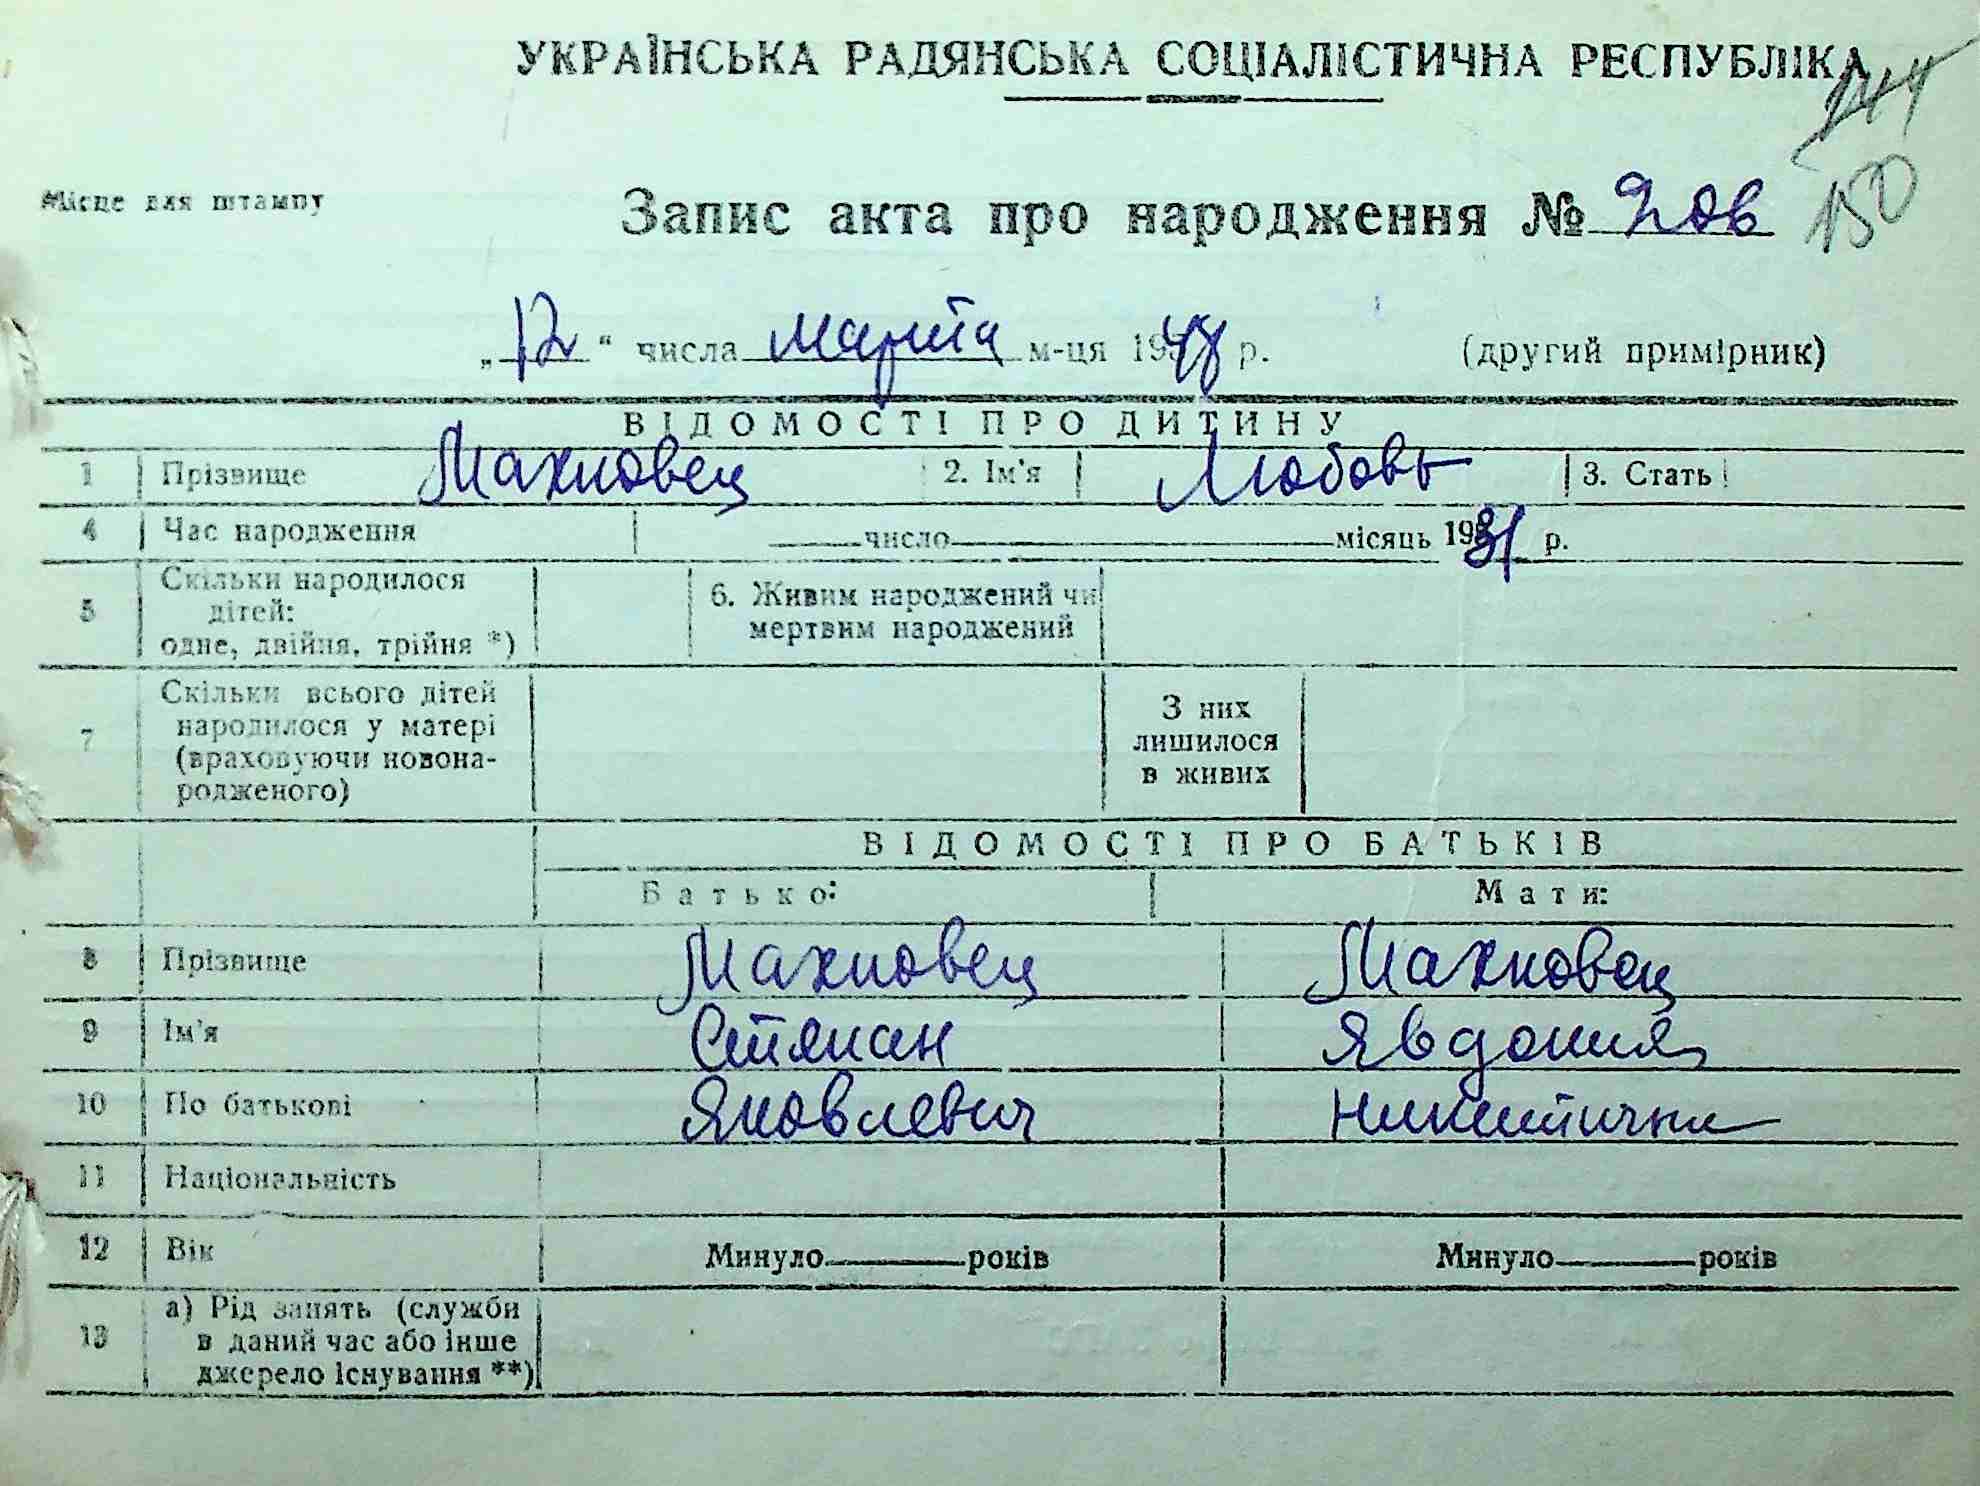 УКРАЇНСЬКА РАДЯНСЬКА СОЦІАЛІСТИЧНА РЕСПУБЛІКА
144
150
Місце для штампу
Запис акта про народження №
„12“ числа марта м-ця 1948 р. (другий примірник)
ВІДОМОСТІ ПРО ДИТИНУ
1 Прізвище Махновец 2. Ім'я Любовь 3. Стать
4 Час народження число місяць 1931 р.
5 Скільки народилося дітей: одне, двійня, трійня *) 6. Живим народжений чи мертвим народжений
7 Скільки всього дітей народилося у матері (враховуючи новонародженого) З них лишилося в живих
ВІДОМОСТІ ПРО БАТЬКІВ
Батько: Мати:
8 Прізвище Махновец Махновец
9 Ім'я Стяпан Явдокия
10 По батькові Яковлевич Никитична
11 Національність
12 Вік Минуло років Минуло років
13 а) Рід занять (служби в даний час або інше джерело існування **)